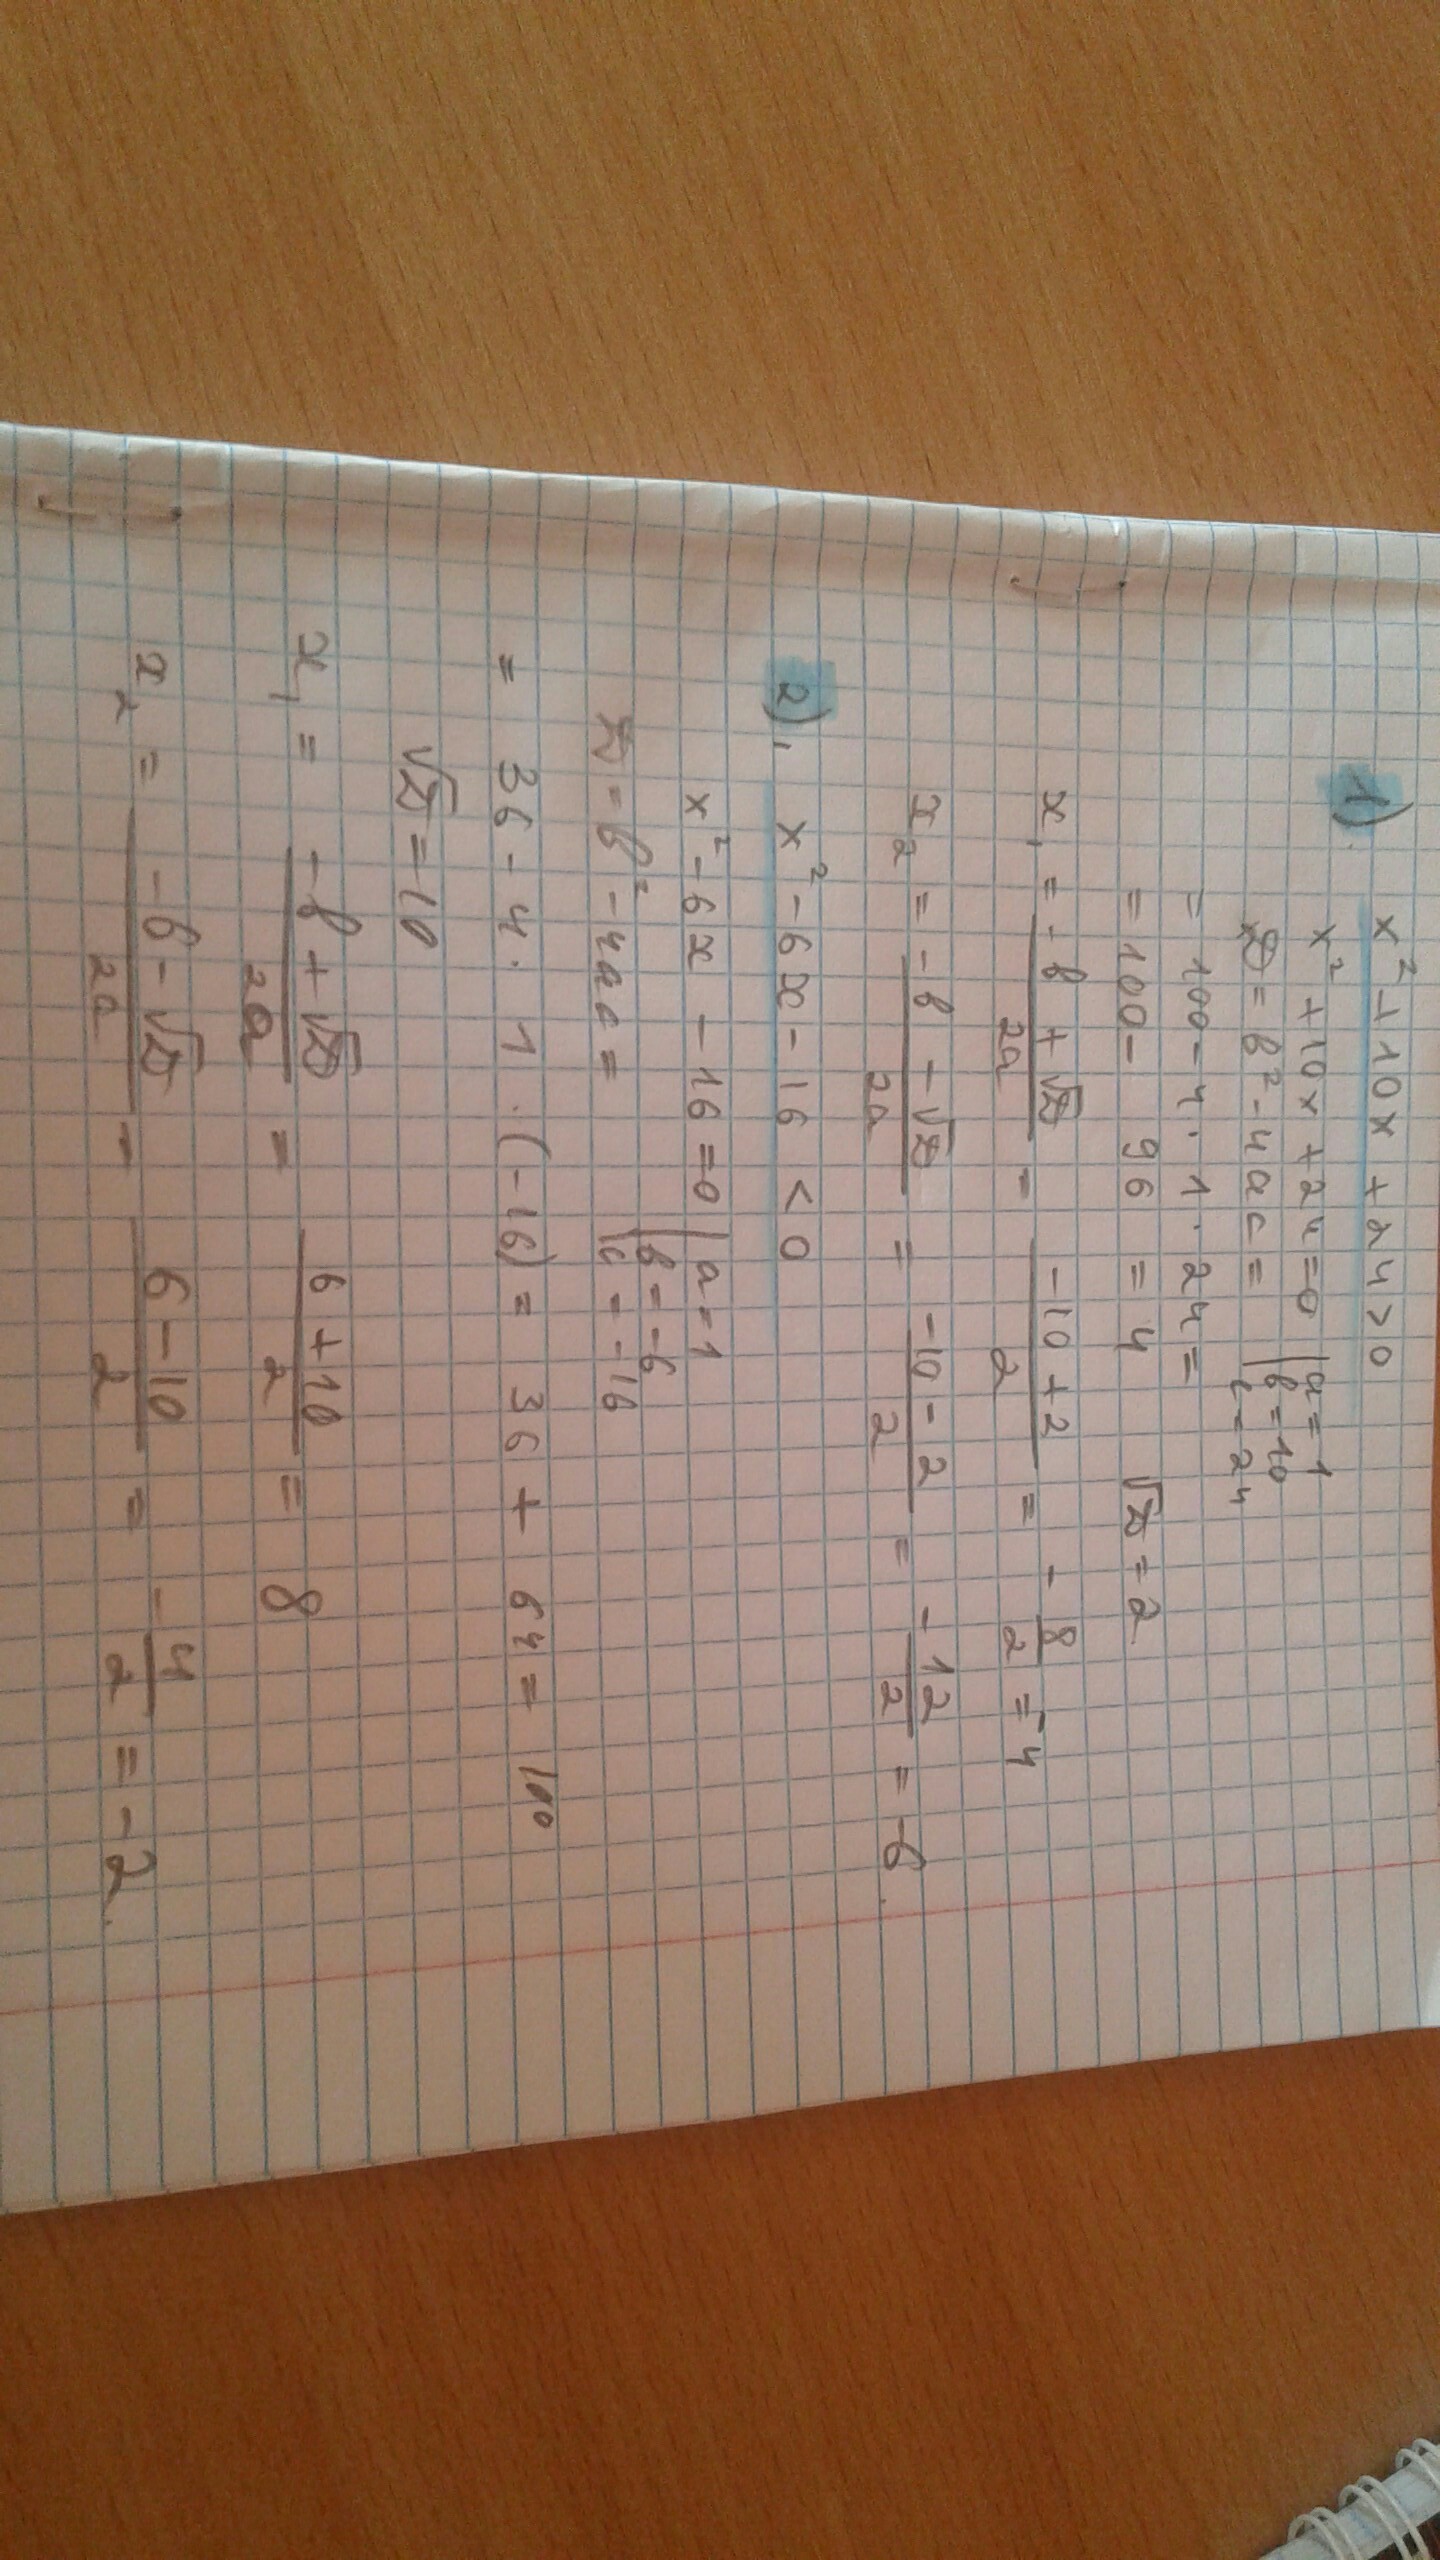 1) x² + 10x + 24 > 0
x² + 10x + 24 = 0 | a = 1
D = b² - 4ac = | b = 10
c = 24
= 100 - 4 · 1 · 24 =
= 100 - 96 = 4 √D = 2
x₁ = (-b + √D)/2a = (-10 + 2)/2 = -8/2 = -4
x₂ = (-b - √D)/2a = (-10 - 2)/2 = -12/2 = -6.
2). x² - 6x - 16 < 0
x² - 6x - 16 = 0 | a = 1
| b = -6
D = b² - 4ac = | c = -16
= 36 - 4 · 1 · (-16) = 36 + 64 = 100
√D = 10
x₁ = (-b + √D)/2a = (6 + 10)/2 = 8
x₂ = (-b - √D)/2a = (6 - 10)/2 = -4/2 = -2.